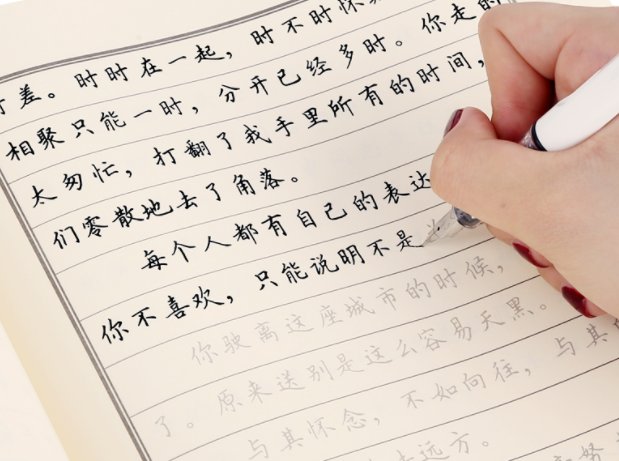 差。时时在一起，时不时怀
相聚只能一时，分开已经多时。你走的
太匆忙，打翻了我手里所有的时间，
们零散地去了角落。
每个人都有自己的表达
你不喜欢，只能说明不是
你驶离这座城市的时候，
了。原来送别是这么容易天黑。
与其怀念，不如向往，与其
去远方。